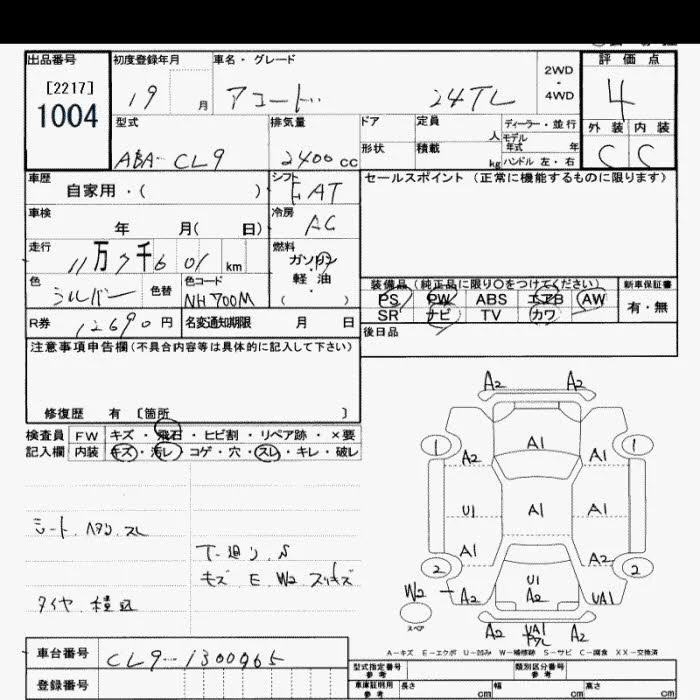 出品番号
[2217]
1004
初度登録年月
19 月
車名・グレード
アコード 24TL
2WD
・
4WD
評価点
4
外装 内装
C C
型式
ABA-CL9
排気量
2400cc
ドア
定員
人
ディーラー・並行
モデル年式 年
形状
積載
kg
ハンドル 左・右
車歴
自家用・( )
シフト
FAT
セールスポイント(正常に機能するものに限ります)
車検
年 月( 日)
冷房
AC
走行
11万7千601km
燃料
ガソリン
軽油
( )
色
シルバー
色替
色コード
NH700M
装備品(純正品に限り○をつけてください)
PS PW ABS エアB AW
SR ナビ TV カワ
新車保証書
有・無
R券
12690円
名変通知期限 月 日
後日品
注意事項申告欄(不具合内容等は具体的に記入して下さい)
修復歴 有 [箇所 ]
検査員
記入欄
FW キズ・飛石・ヒビ割・リペア跡・×要
内装 キズ・汚レ・コゲ・穴・スレ・キレ・破レ
シート、ハタン、スレ
下廻り、S
キズ E W2 スリキズ
タイヤ、積込
A2 A2
1 1
A2 A1 A1
U1 A1 A1
A1 A2
2 2
U1
A2
W2
A2 UA1
スペア
A2 UA1 A2
A-キズ E-エクボ U-凹み W-補修跡 S-サビ C-腐食 XX-交換済
車台番号
CL9-1300965
登録番号
型式指定番号
参考
類別区分番号
参考
車庫証明用
参考
長さ cm
幅 cm
高さ cm